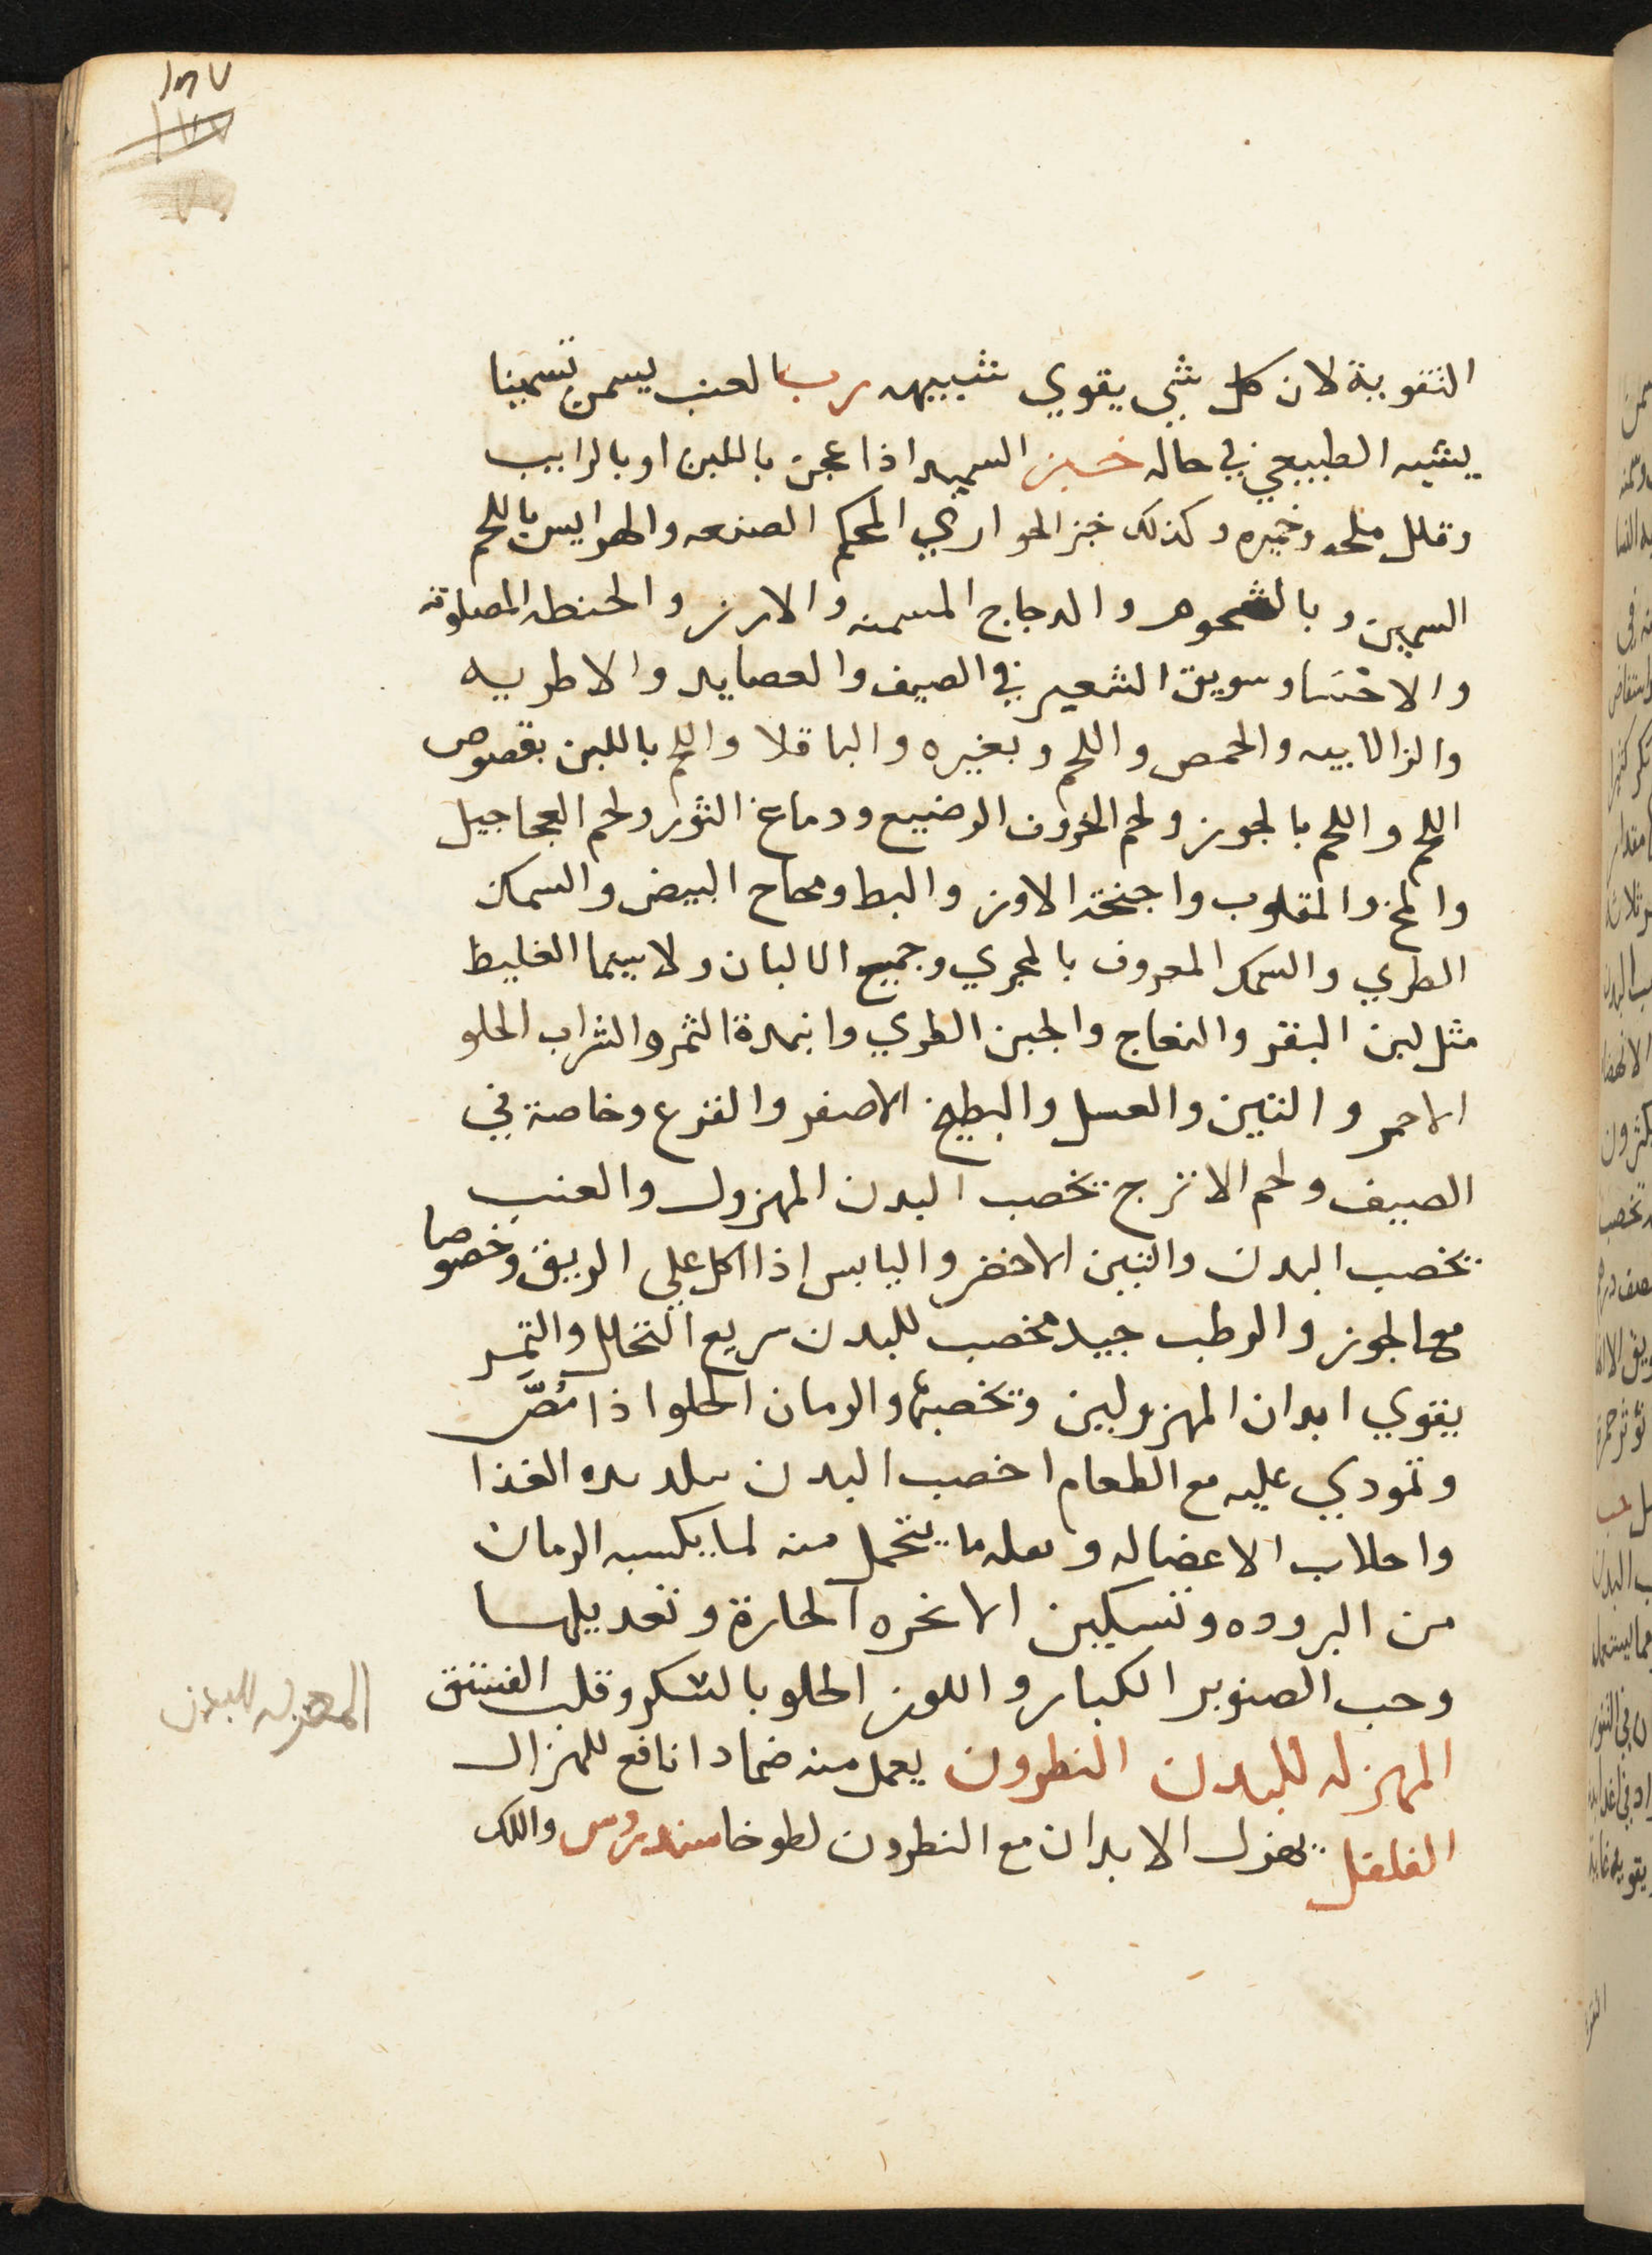 التقوية لان كل شي يقوي شبيهه رب العنب يسمن تسمينا
يشبه الطبيعي في حاله خبز السميد اذا عجن باللبن او بالرايب
وقلل ملحه وخميره وكذلك خبز الحواري المحكم الصنعه والهرايس باللحم
السمين وبالشحوم والدجاج المسمنه والارز والحنطه المصلوقه
والاحسا وسويق الشعير في الصيف والعصايد والاطريه
والزلابيه والحمص واللحم وبغيره والباقلا واللحم باللبن بقصوص
اللحم واللحم بالجوز ولحم الخروف الرضيع ودماغ الثور ولحم العجاجيل
والمخ والمقلوب واجنحة الاوز والبط ومحاح البيض والسمك
الطري والسمك المعروف بالجري وجميع الالبان ولا سيما الغليظ
مثل لبن البقر والنعاج والجبن الطري وانبذة التمر والشراب الحلو
الاحمر والتين والعسل والبطيخ الاصفر والقرع وخاصة في
الصيف ولحم الاترج يخصب البدن المهزول والعنب
يخصب البدن والتين الاخضر واليابس اذا اكل علي الريق وخصوصا
مع الجوز والرطب جيد مخصب للبدن سريع التحلل والتمر
يقوي ابدان المهزولين وتخصبها والرمان الحلو اذا مُصَّ
وتمودي عليه مع الطعام اخصب البدن الغذا
واحلاب الاعضا له ما يتحمل منه لما يكسبه الرمان
من البروده وتسكين الابخره الحارة وتعديلها
وحب الصنوبر الكبار واللوز الحلو بالسكر وقلب الفستق
المهزله للبدن
المهزله للبدن النطرون يعمل منه ضمادا نافع للهزال
الفلفل يهزل الابدان مع النطرون لطوخا سندروس واللك